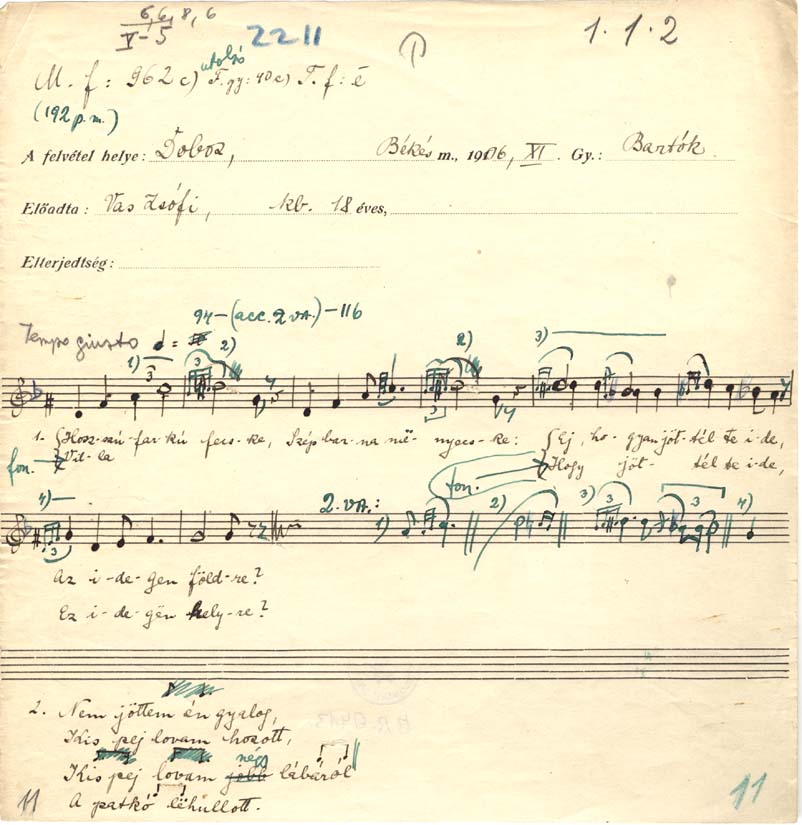 6, 6, 8, 6
V-5
2211
1. 1. 2
utolsó
M. f: 962 c) F. gy: 40 c) T. f: é
(192 p.m.)
A felvétel helye: Doboz, Békés m., 1906, XI. Gy.: Bartók.
Előadta: Vas Zsófi, kb. 18 éves,
Elterjedtség:
94-(acc. 2 va.)-116
Tempo giusto
1) 3 3 2) 2) 3)
1. Hosz-szú-far-kú fecs-ke, Szép bar-na me- nyecs-ke: Ej, ho-gyan jöt-tél te i-de,
fon. Vil-la Hogy jöt- tél te i-de,
fon.
4) 2. va.: 1) 2) 3) 3 3 4)
3
Az i-de-gen föld-re?
Ez i-de-gën hely-re?
2. Nem jöttem én gyalog,
Kis pej lovam hozott,
négy
Kis pej lovam jobb lábáról
A patkó lëhullott.
11
11